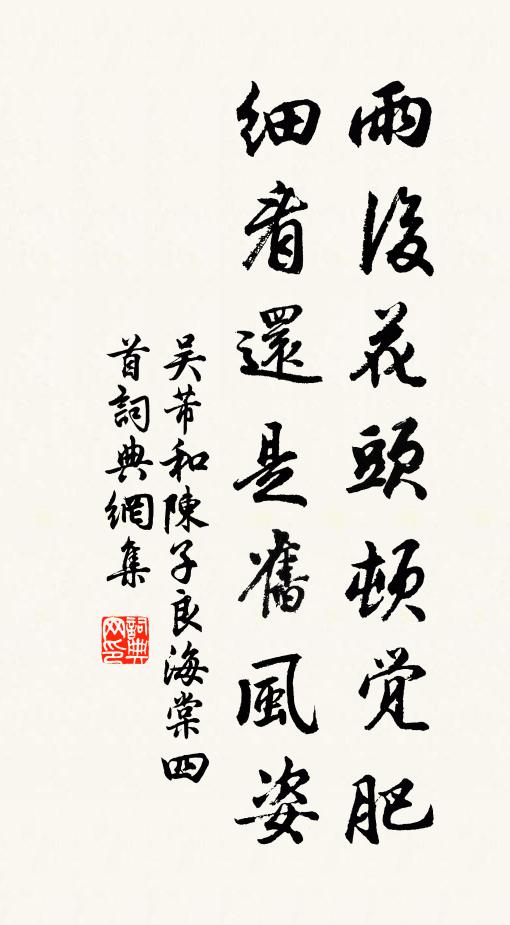 雨後花頭頓觉肥
細看還是舊風姿
吴芾和陳子良海棠四
首詞典網集
詞典网印